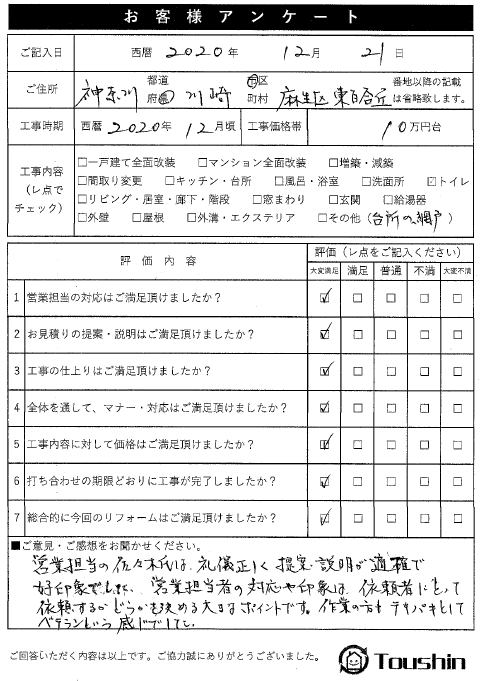 お客様アンケート
ご記入日 西暦 2020 年 12 月 21 日
ご住所 神奈川 都道府県 川崎 市区町村 麻生区 東百合丘 番地以降の記載は省略致します。
工事時期 西暦 2020 年 12 月頃 工事価格帯 10 万円台
工事内容（レ点でチェック）
□一戸建て全面改装 □マンション全面改装 □増築・減築
□間取り変更 □キッチン・台所 □風呂・浴室 □洗面所 ☑トイレ
□リビング・居室・廊下・階段 □窓まわり □玄関 □給湯器
□外壁 □屋根 □外溝・エクステリア □その他（台所の網戸）
評価内容 評価（レ点をご記入ください）
大変満足 満足 普通 不満 大変不満
1 営業担当の対応はご満足頂けましたか？ ☑ □ □ □ □
2 お見積りの提案・説明はご満足頂けましたか？ ☑ □ □ □ □
3 工事の仕上りはご満足頂けましたか？ ☑ □ □ □ □
4 全体を通して、マナー・対応はご満足頂けましたか？ ☑ □ □ □ □
5 工事内容に対して価格はご満足頂けましたか？ ☑ □ □ □ □
6 打ち合わせの期限どおりに工事が完了しましたか？ ☑ □ □ □ □
7 総合的に今回のリフォームはご満足頂けましたか？ ☑ □ □ □ □
■ご意見・ご感想をお聞かせください。
営業担当の佐々木氏は、礼儀正しく提案・説明が適確で
好印象でした。営業担当者の対応や印象は、依頼者にとって
依頼するかどうかを決める大きなポイントです。作業の方もテキパキとして
ベテランという感じでした。
ご回答いただく内容は以上です。ご協力誠にありがとうございました。
Toushin